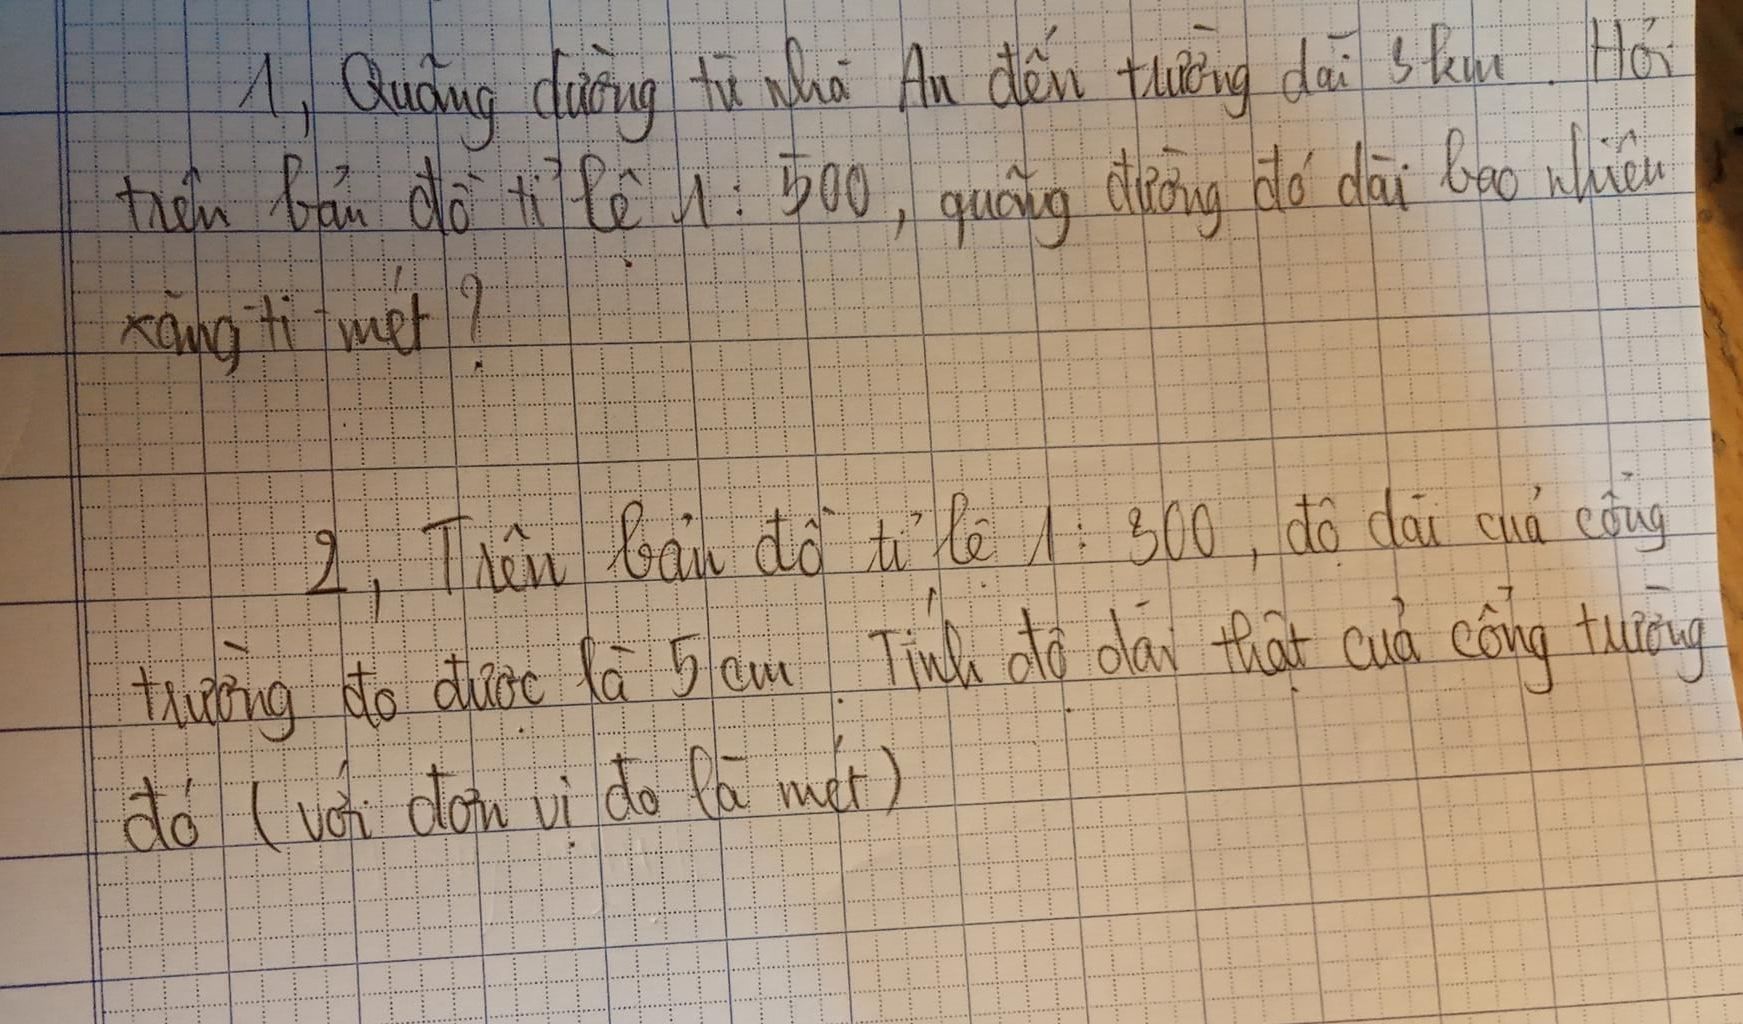 1, Quãng đường từ nhà An đến trường dài 3km. Hỏi
trên bản đồ tỉ lệ 1: 500, quãng đường đó dài bao nhiêu
xăng-ti-mét?
2, Trên bản đồ tỉ lệ 1: 300, độ dài của cổng
trường đo được là 5cm. Tính độ dài thật của cổng trường
đó (với đơn vị đo là mét)